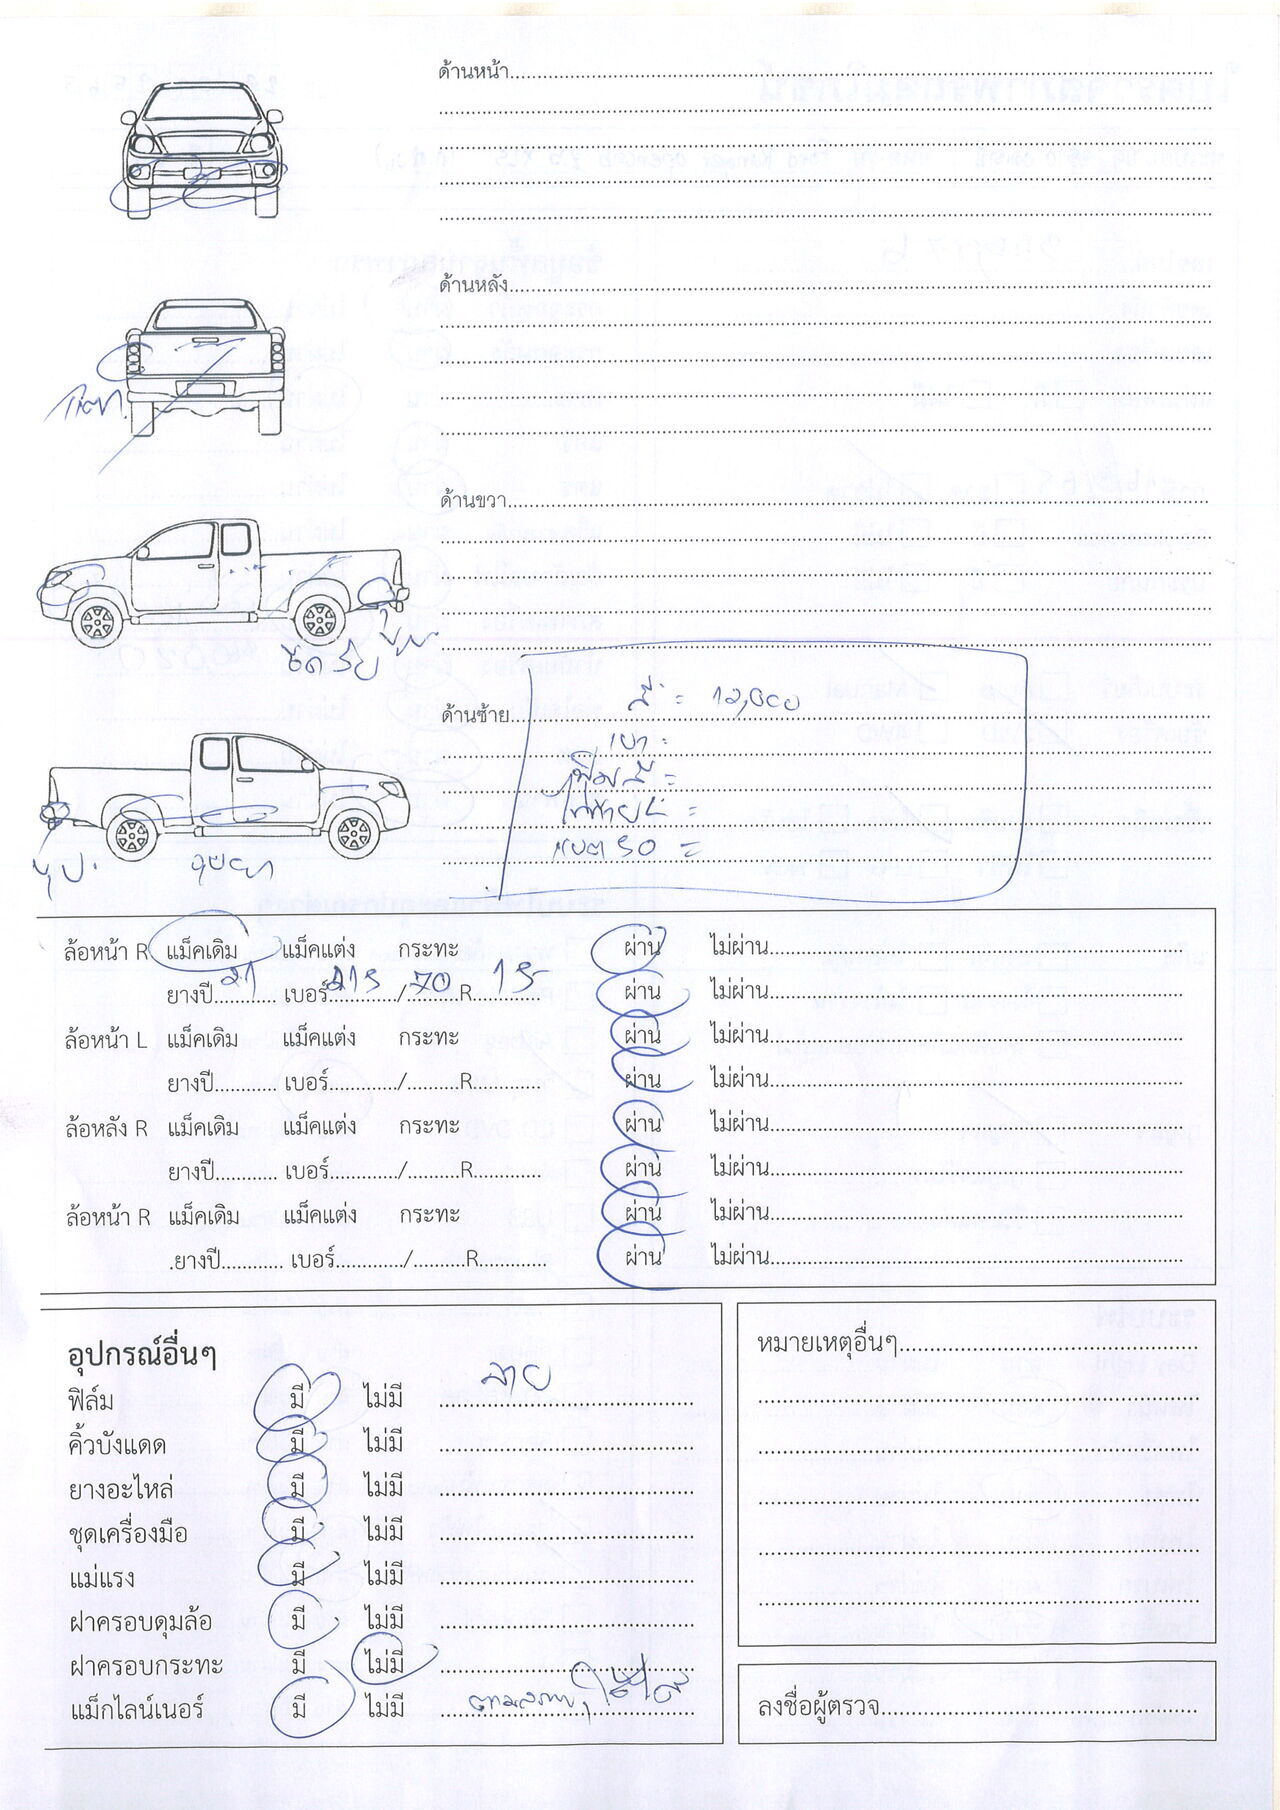 ด้านหน้า
ด้านหลัง
ด้านขวา
บุบ.
ด้านซ้าย
สี = 12,000
เบา =
=
=
=
บุบ.
ล้อหน้า R แม็คเดิม แม็คแต่ง กระทะ ผ่าน ไม่ผ่าน
ยางปี 21 เบอร์ 215 / 70 R 15 ผ่าน ไม่ผ่าน
ล้อหน้า L แม็คเดิม แม็คแต่ง กระทะ ผ่าน ไม่ผ่าน
ยางปี เบอร์ / R ผ่าน ไม่ผ่าน
ล้อหลัง R แม็คเดิม แม็คแต่ง กระทะ ผ่าน ไม่ผ่าน
ยางปี เบอร์ / R ผ่าน ไม่ผ่าน
ล้อหน้า R แม็คเดิม แม็คแต่ง กระทะ ผ่าน ไม่ผ่าน
.ยางปี เบอร์ / R ผ่าน ไม่ผ่าน
อุปกรณ์อื่นๆ
ฟิล์ม มี ไม่มี
คิ้วบังแดด มี ไม่มี
ยางอะไหล่ มี ไม่มี
ชุดเครื่องมือ มี ไม่มี
แม่แรง มี ไม่มี
ฝาครอบดุมล้อ มี ไม่มี
ฝาครอบกระทะ มี ไม่มี
แม็กไลน์เนอร์ มี ไม่มี ตามสภาพ
หมายเหตุอื่นๆ
ลงชื่อผู้ตรวจ